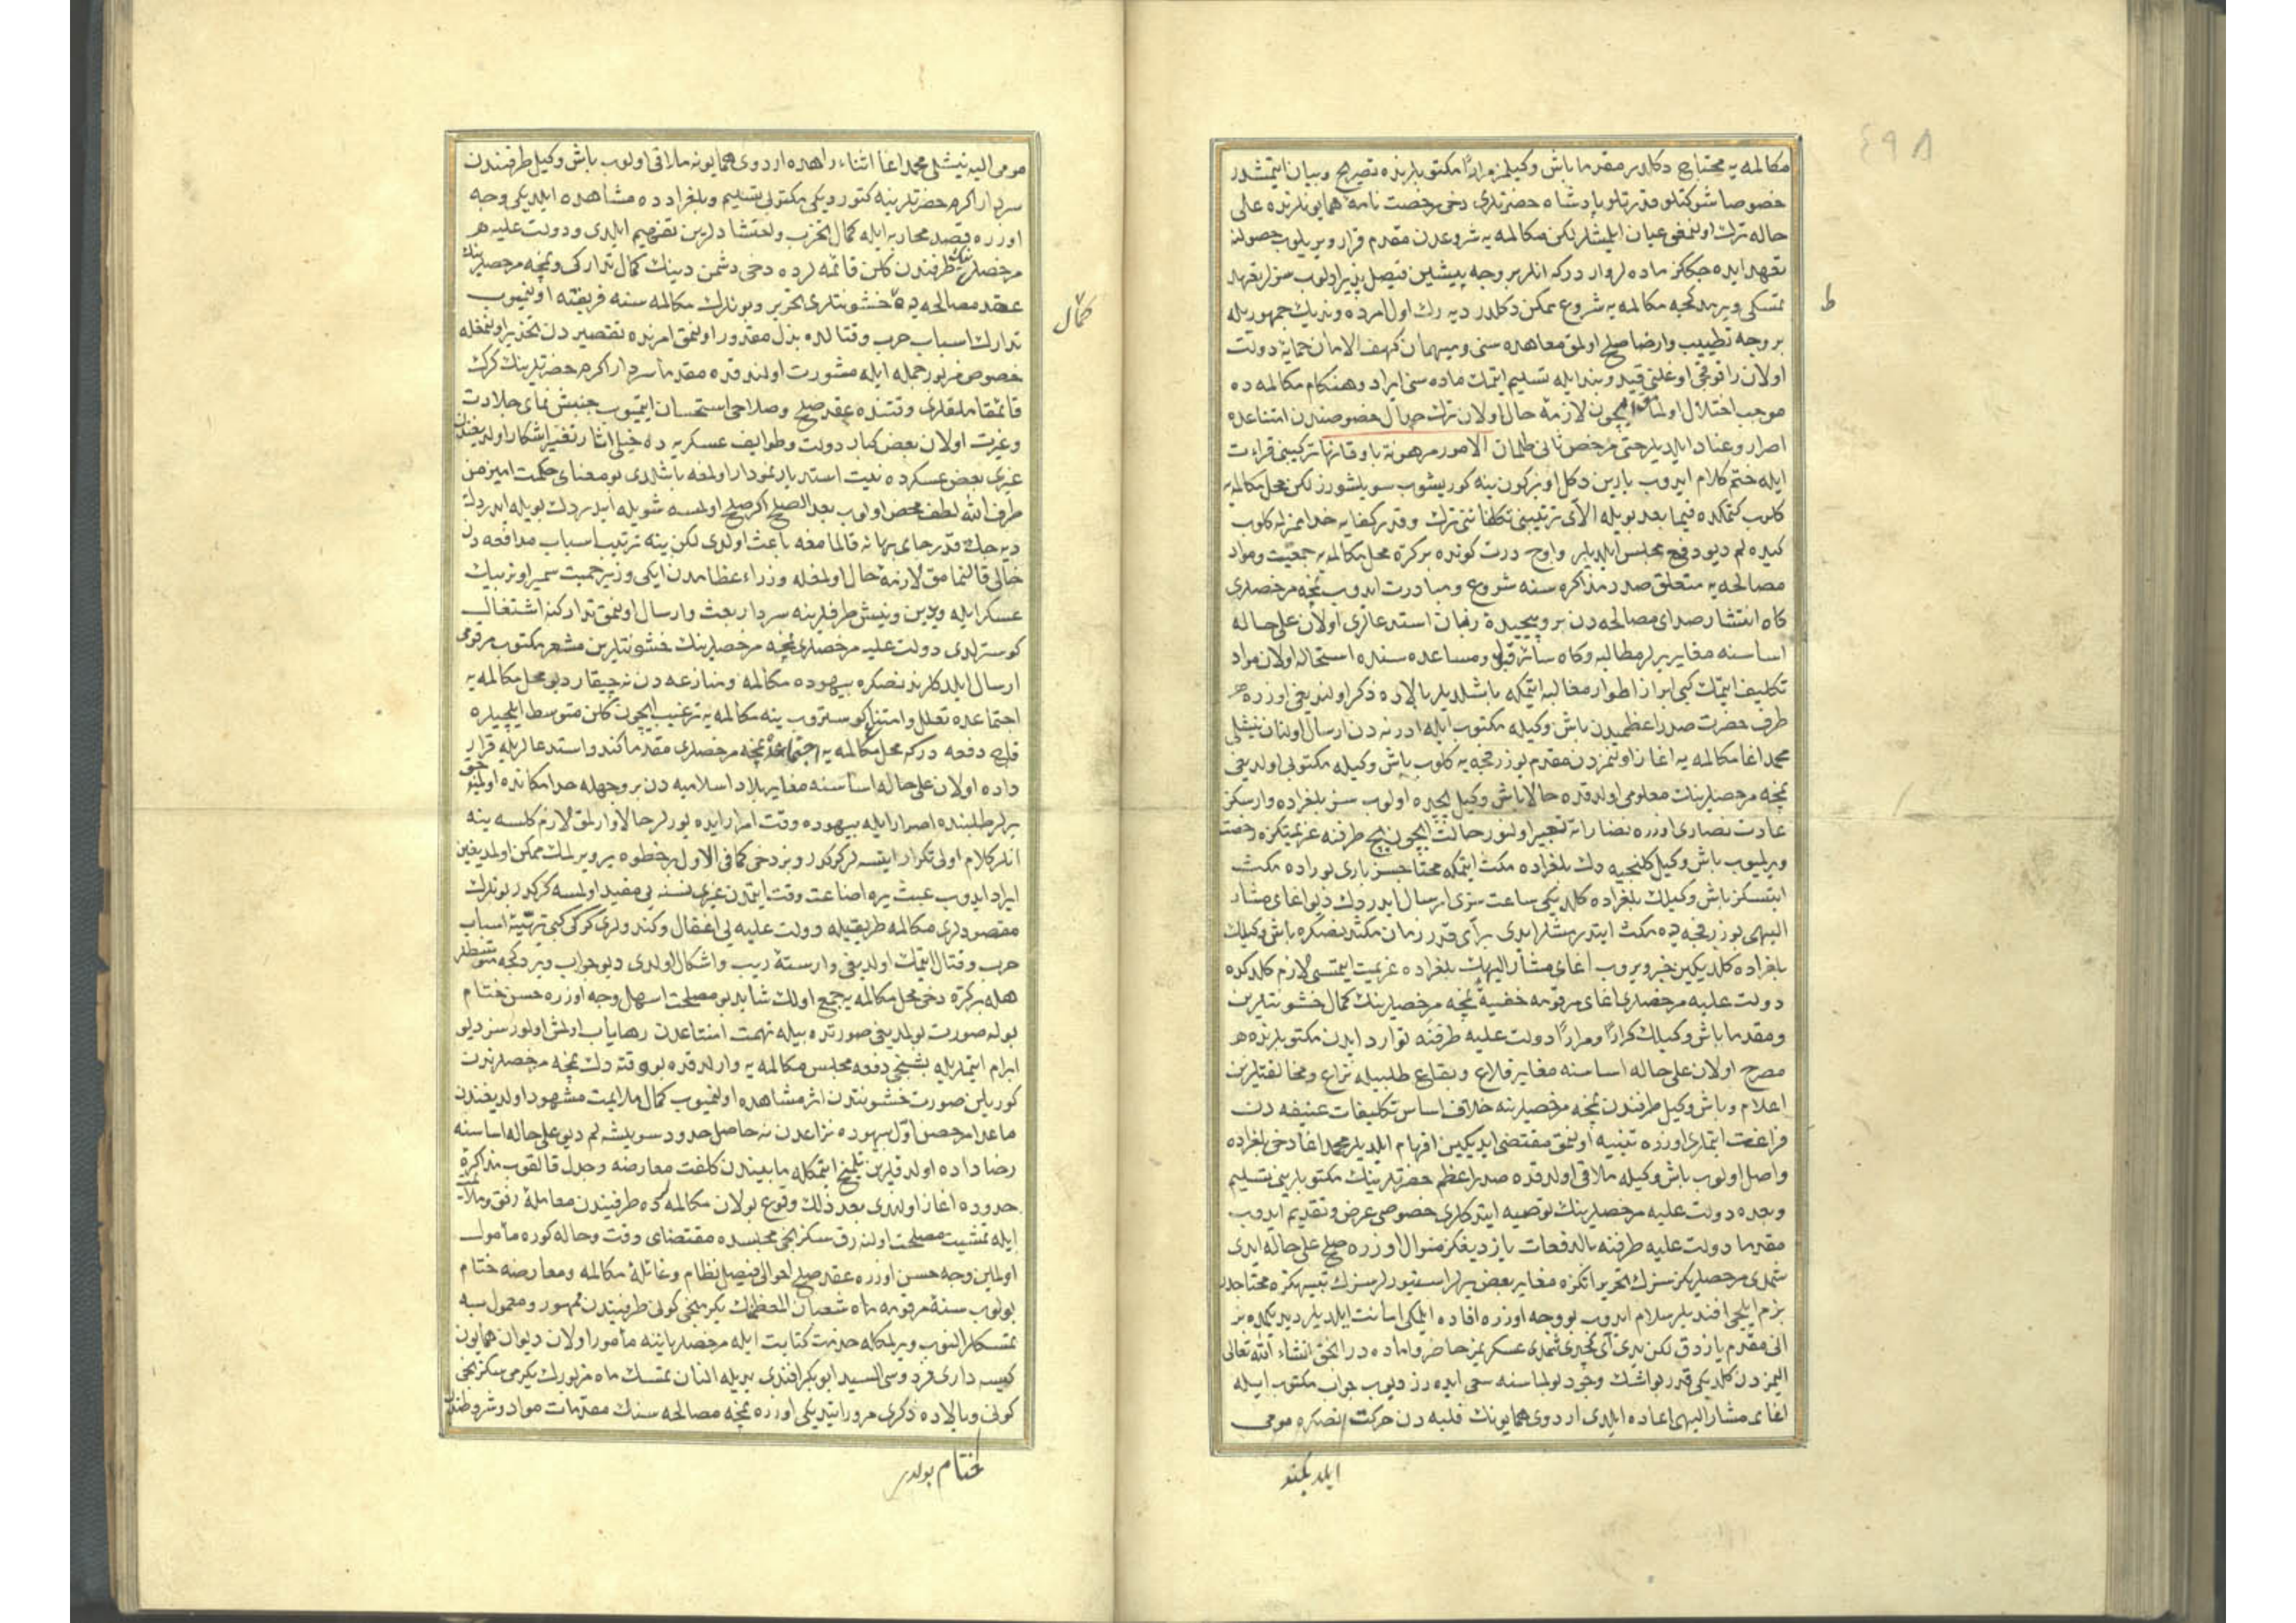 ٤٩٨
مكالمه‌يه محتاج دكلدر مقدما باش وكيلمز مرارًا مكتوبلرنده تصريح و بيان ايتمشدر
خصوصا شوكتلو قدرتلو پادشاه حضرتلرى دخى رخصت نامهٔ همايونلرنده على
حاله ترك اولنمغى عيان ايلمشلر لكن مكالمه‌يه شروعدن مقدم قرار ويريلوب حصولنه
تعهد ايده‌جككز ماده‌لر واردركه انلر بر وجه پيشين فيصل‌پذير اولوب سزلر تعهد
تمسكى ويرمدكجه مكالمه‌يه شروع ممكن دكلدر ديه‌رك اول امرده ونديك جمهوريله
ط
بر وجه تطييب وارضا صلح اولمق معاهده‌سنى و ميهمان كهف الامان حمايهٔ دولت
اولان راقوفجى اوغلنى قيد و بند ايله تسليم ايتمك ماده‌سنى ايراد و هنكام مكالمه‌ده
موجب اختلال اولمامق ايچون لازمهٔ حال اولان ترك جدال خصوصندن امتناعده
اصرار وعناد ايلديلر حتى مرخص ثانى طلمان الامور مرهونة باوقاتها تركيبنى قرائت
ايله ختم كلام ايدوب يارين دكل اوبركون ينه كوريشوب سويلشورز لكن محل مكالمه‌يه
كلوب كتمكده فيما بعد بويله الآى ترتيبنى تكلفاتنى ترك و قدر كفايه خدامزله كلوب
كيده‌لم ديو دفع مجلس ايلديلر واوچ درت كونده بر كره محل مكالمه‌يه جمعيت و مواد
مصالحه‌يه متعلق صدد مذاكره‌سنه شروع و مبادرت ايدوب نمچه مرخصلرى
كاه انتشار صداى مصالحه‌دن بروپيچيدهٔ زبان استدعالرى اولان على حاله
اساسنه مغاير يرلر مطالبه وكاه سائر قبول و مساعده‌سنده استحاله اولان مواد
تكليف ايتمك كبى ابراز اطوار مغالبه ايتمكه باشلديلر بالاده ذكر اولنديغى اوزره
طرف حضرت صدر اعظميدن باش وكيله مكتوب ايله ادرنه‌دن ارسال اولنان نيشلى
محمد اغا مكالمه‌يه اغاز اولنمزدن مقدم بوزرفجه‌يه كلوب باش وكيله مكتوبى اولديغى
نمچه مرخصلرينك معلومى اولدقده حالا باش وكيل بچده اولوب سز بلغراده وارسكز
عادت نصارى اوزره نضاراته تعبير اولنور حالت ايچون بچ طرفنه عزيمتكزه رخصت
ويرلميوب باش وكيل كلنجيه دك بلغرادده مكث ايتمكه محتاجسز بارى بوراده مكث
ايتسكز باش وكيلك بلغراده كلديكى ساعت سزى ارسال ايدرك ديو اغاى مشار
اليهى بوزرفجه‌ده مكث ايتدرمشلر ايدى بر آى قدر زمان مكثندنصكره باش وكيلك
بلغراده كلديكين خبر ويروب اغاى مشار اليهك بلغراده عزيمت ايتمسى لازم كلدكده
دولت عليه مرخصلرى اغاى مرقومه خفيةً نمچه مرخصلرينك كمال خشونتلرين
و مقدما باش وكيلك كرارًا ومرارًا دولت عليه طرفنه توارد ايدن مكتوبلرنده
مصرح اولان على حاله اساسنه مغاير قلاع و بقاع طلبيله نزاع و مخالفتلرين
اعلام و باش وكيل طرفندن نمچه مرخصلرينه خلاف اساس تكليفات عنيفه‌دن
فراغت ايتملرى اوزره تنبيه اولنمق مقتضى ايديكين افهام ايلديلر محمد اغا دخى بلغراده
واصل اولوب باش وكيله ملاقى اولدقده صدر اعظم حضرتلرينك مكتوبلرينى تسليم
وبعده دولت عليه مرخصلرينك توصيه ايتدكلرى خصوصى عرض و تقديم ايدوب
مقدما دولت عليه طرفنه بالدفعات يازديغكز منوال اوزره صلح على حاله ايدى
شمدى مرخصلريكز سزك تحريراتكزه مغاير بعض يرلر استيورلر سزك تنبيهكزه محتاجدر
بزم ايلچى افنديلر سلام ايدوب بو وجه اوزره افاده ايلمكى امانت ايلديلر ديدكده بز
انى مقدم يازدق لكن يدى آى كچدى شمدى عسكريمز حاضر و اماده‌در انجق انشاء الله تعالى
المزدن كلديكى قدر بو اشك وجود بولماسنه سعى ايده‌رز ديوب جواب مكتوب ايله
اغاى مشار اليهى اعاده ايلدى اردوى همايونك فلبه‌دن حركتندنصكره مومى
مومى اليه نيشلى محمد اغا اثناء راهده اردوى همايونه ملاقى اولوب باش وكيل طرفندن
سردار اكرم حضرتلرينه كتورديكى مكتوبى تسليم و بلغرادده مشاهده ايلديكى وجه
اوزره قصد محاربه ايله كمال تحزب و احتشادلرين تفهيم ايلدى و دولت عليه
مرخصلرينك طرفندن كلن قائمه‌لرده دخى دشمن دينك كمال تداركى و نمچه مرخصلرينك
عقد مصالحه‌يه خشونتلرى تحرير و بونلرك مكالمه‌سنه فريفته اولنميوب
كمال
تدارك اسباب حرب و قتالده بذل مقدور اولنمق امرنده تقصيردن تحذير اولنمغله
خصوص مزبور جمله ايله مشورت اولندقده مقدما سردار اكرم حضرتلرينك كرك
قائمقاملقلرى وقتنده عقد صلح و صلاحى استحسان ايتميوب جنبش نماى جلادت
وغيرت اولان بعض كبار دولت و طوايف عسكريه‌ده خيلى اثار تغير اشكار اولديغندن
غيرى بعض عسكرده نعيت استدبار نمودار اولمغه باشلدى بو معناى حكمت اميز من
طرف الله لطف محض اولوب بعد الصلح اكر صلح اولمسه شويله ايدردك بويله ايدردك
ديه‌جك قدر جاى بهانه قالمامغه باعث اولدى لكن ينه ترتيب اسباب مدافعه‌دن
خالى قالنمامق لازمهٔ حال اولمغله وزراء عظامدن ايكى وزير حميت سمير اوتوز بيك
عسكر ايله ويدين و نيش طرفلرينه سردار بعث و ارسال اولنمق تداركنه اشتغال
كوسترلدى دولت عليه مرخصلرى نمچه مرخصلرينك خشونتلرين مشعر مكتوب مرقومى
ارسال ايلدكلرندنصكره بيهوده مكالمه و منازعه‌دن نه چيقار ديو محل مكالمه‌يه
اجتماعده تعلل و امتناع كوستروب ينه مكالمه‌يه ترغيب ايچون كلن متوسط ايلچيلره
قاچ دفعه‌دركه محل مكالمه‌يه اجتماعده نمچه مرخصلرى مقدما كندو استدعالريله قرار
داده اولان على حاله اساسنه مغاير بلاد اسلاميه‌دن بر وجهله حد امكانده اولميه‌جق
يرلر طلبنده اصرار ايله بيهوده وقت امرار ايده‌يورلر حالا وارلمق لازم كلسه ينه
انلر كلام اولى تكرار ايتسه‌لر كركدر و بز دخى كما فى الاول بر خطوه ير ويرلمك ممكن اولمديغين
ايراد ايدوب عبث يره اضاعت وقت ايتمدن غيرى نسنه‌يى مفيد اولمسه كركدر بونلرك
مقصودلرى مكالمه طريقيله دولت عليه‌يى اغفال و كندولرى كركى كبى تهيئهٔ اسباب
حرب و قتال ايتمك اولديغى وارستهٔ ريب و اشكال اولدى ديو جواب ويردكجه متوسطلر
هله بر كره دخى محل مكالمه‌يه جمع اولك شايد بو مصلحت اسهل وجه اوزره حسن ختام
بوله صورت بولمديغى صورتده بيله تهمت امتناعدن رهاياب اولمش اولورسز ديو
ابرام ايتملريله بشنجى دفعه مجلس مكالمه‌يه وارلدقده بو وقته دك نمچه مرخصلرندن
كوريلن صورت خشونتدن اثر مشاهده اولنميوب كمال ملايمت مشهود اولديغندن
ماعدا مرخص اول بيهوده نزاعدن نه حاصل حدود سويلشه‌لم ديو على حاله اساسنه
رضا داده اولدقلرين تلميح ايتمكله مابيندن كلفت معارضه و جدل قالقوب مذاكرهٔ
حدوده اغاز اولندى بعد ذلك وقوع بولان مكالمه‌لرده طرفيندن معاملهٔ رفق و ملايمت
ايله تمشيت مصلحت اولنه‌رق سكزنجى مجلسده مقتضاى وقت و حاله كوره مأمول
اولملين وجه حسن اوزره عقد صلح احوالى فيصل نظام و غائلهٔ مكالمه و معارضه ختام
بولوب سنهٔ مرقومه ماه شعبان المعظمك يكرمنجى كونى طرفيندن ممهور و معمول به
تمسكلر النوب ويرلمكله خدمت كتابت ايله مرخصلر يانينه مأمور اولان ديوان همايون
كيسه‌دارى فردوسى السيد ابوبكر افندى يديله النان تمسك ماه مزبورك يكرمى سكزنجى
كونى و بالاده ذكرى مرور ايتديكى اوزره نمچه مصالحه‌سنك مقدمات مواد و شروطندن
ايلديكندن
ختام بولدى